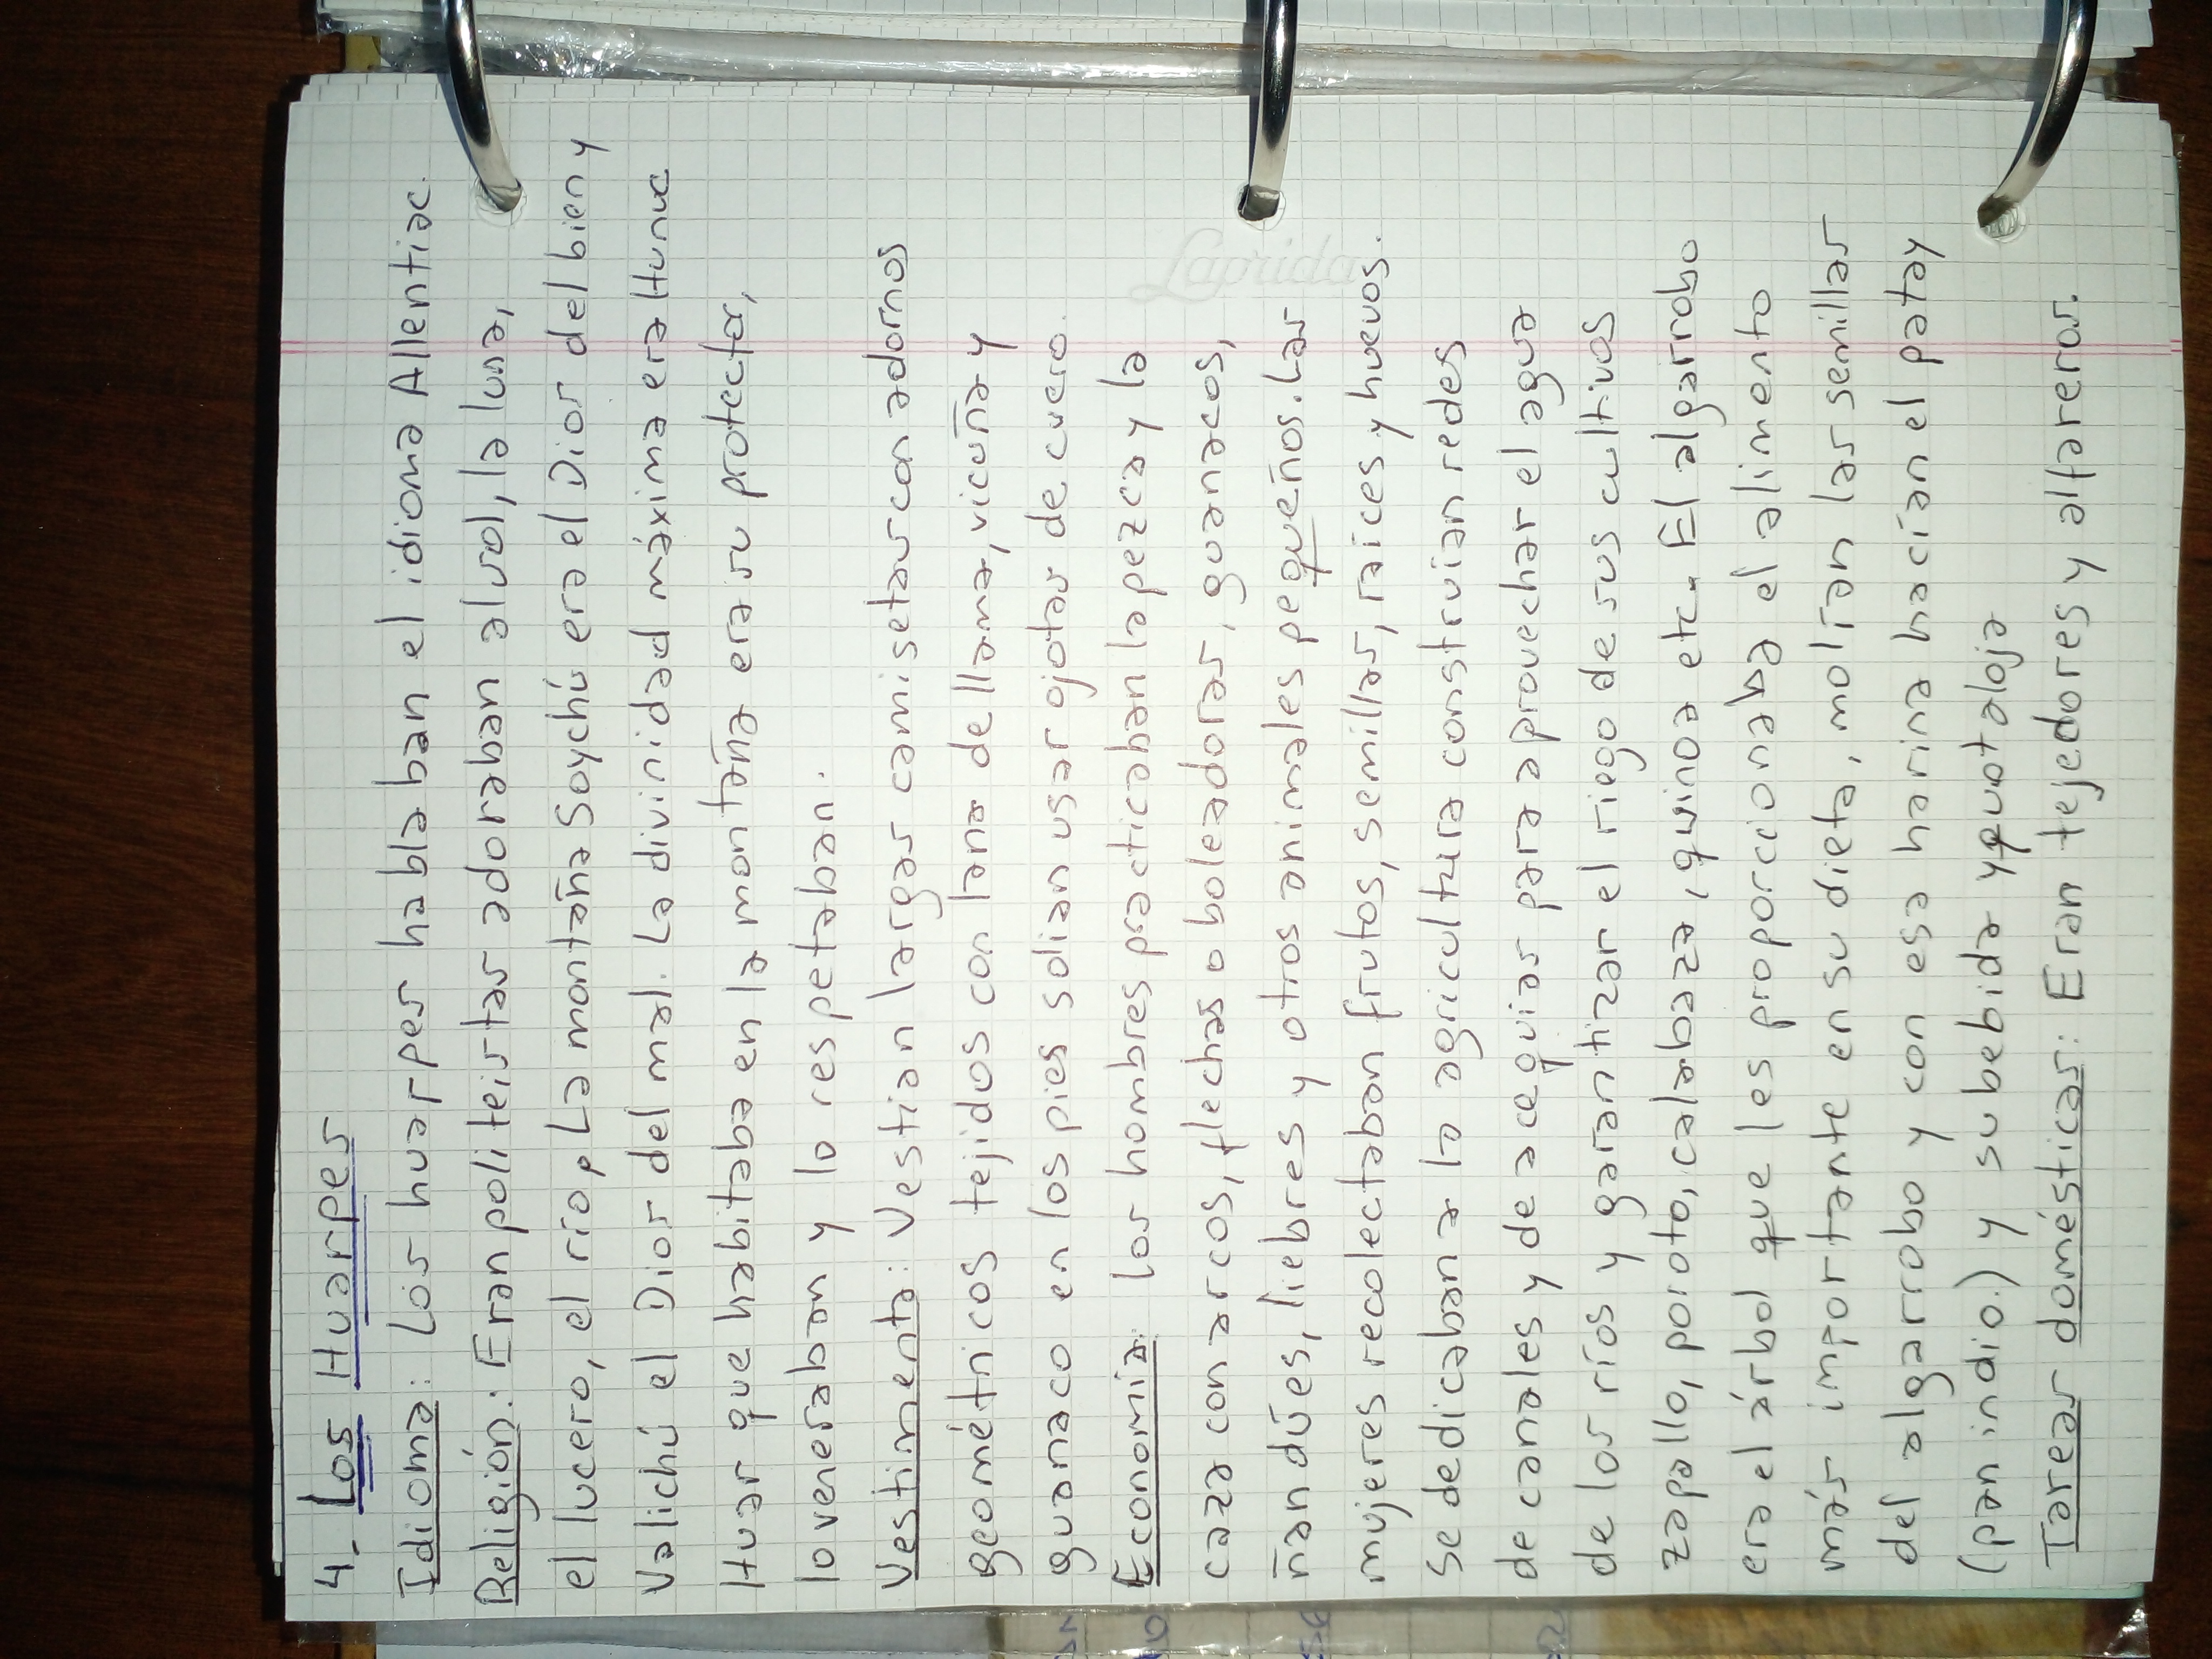 4- Los Huarpes
Idioma: Los huarpes hablaban el idioma Allentiac.
Religión: Eran politeistas adoraban al sol, la luna,
el lucero, el río, La montaña Soychú era el Dios del bien y
Valichú el Dios del mal. La divinidad máxima era Hunuc
Huar que habitaba en la montaña era su protector,
lo veneraban y lo respetaban.
Vestimenta: Vestian largas camisetas con adornos
geométricos tejidos con lana de llama, vicuña y
guanaco en los pies solian usar ojotas de cuero.
Economía: los hombres practicaban la pezca y la
caza con arcos, flechas o boleadoras, guanacos,
ñandúes, liebres y otros animales pequeños. Las
mujeres recolectaban frutos, semillas, raíces y huevos.
Se dedicaban a la agricultura construian redes
de canales y de acequias para aprovechar el agua
de los ríos y garantizar el riego de sus cultivos
zapallo, poroto, calabaza, quinoa etc. El algarrobo
era el árbol que les proporcionaba el alimento
más importante en su dieta, molían las semillas
del algarrobo y con esa harina hacían el patay
(pan indio.) y su bebida aloja
Tareas domésticas: Eran tejedores y alfareros.
Laprida